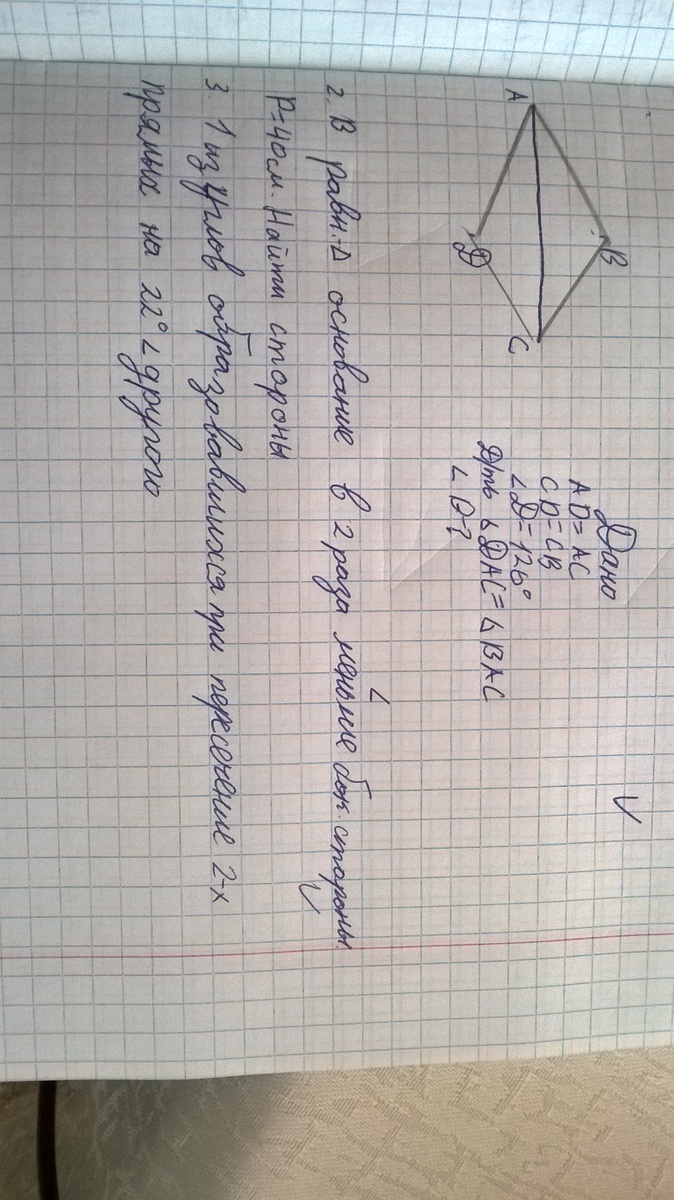 A
B
C
D
Дано
AD=AC
CD=CB
∠D=126°
Д/ть △DAC=△BAC
∠B-?
2. В равн.△ основание в 2 раза меньше бок. стороны.
P=40см. Найти стороны
3. 1 из углов образовавшихся при пересечение 2-х
прямых на 22° < другого